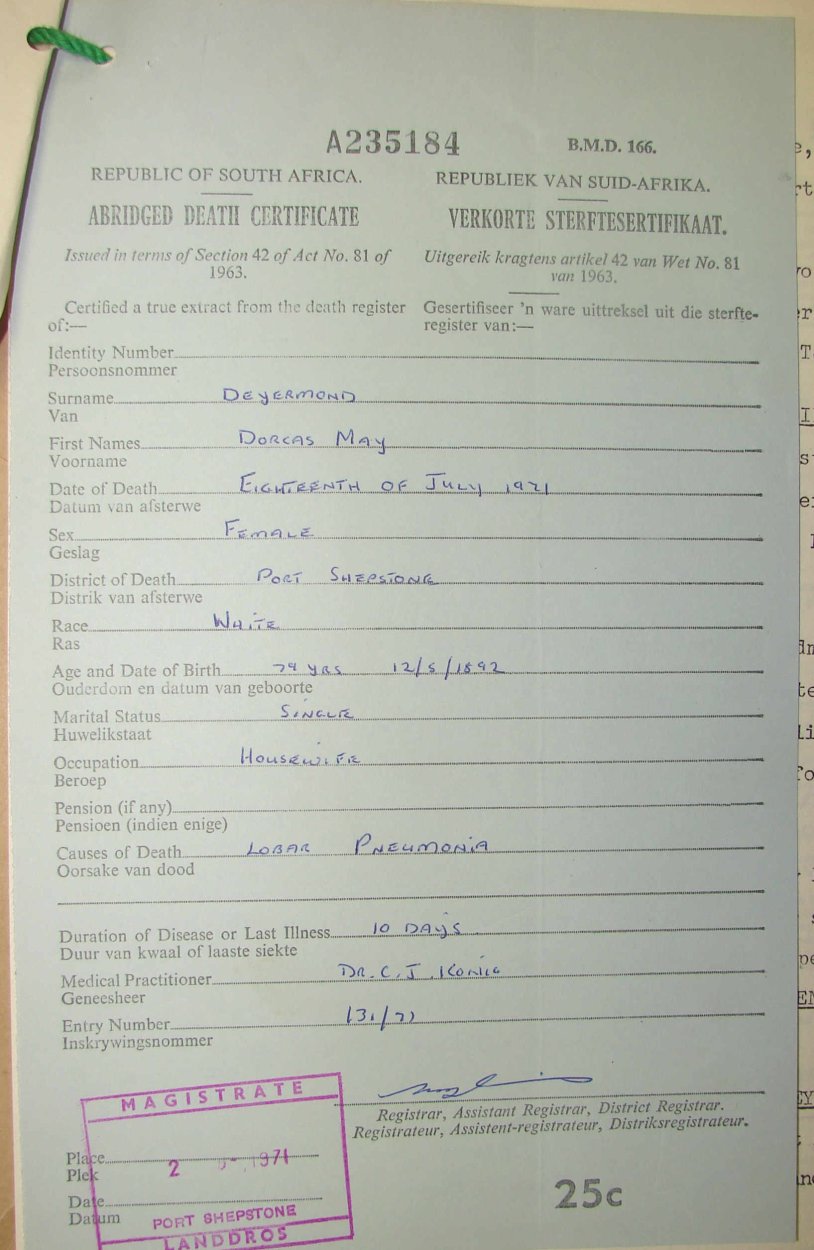 A235184 B.M.D. 166.
REPUBLIC OF SOUTH AFRICA. REPUBLIEK VAN SUID-AFRIKA.
ABRIDGED DEATH CERTIFICATE VERKORTE STERFTESERTIFIKAAT.
Issued in terms of Section 42 of Act No. 81 of Uitgereik kragtens artikel 42 van Wet No. 81
1963. van 1963.
Certified a true extract from the death register Gesertifiseer 'n ware uittreksel uit die sterfte-
of:— register van:—
Identity Number
Persoonsnommer
Surname DEYERMOND
Van
First Names DORCAS MAY
Voorname
Date of Death EIGHTEENTH OF JULY 1971
Datum van afsterwe
Sex FEMALE
Geslag
District of Death PORT SHEPSTONE
Distrik van afsterwe
Race WHITE
Ras
Age and Date of Birth 79 YRS 12/5/1892
Ouderdom en datum van geboorte
Marital Status SINGLE
Huwelikstaat
Occupation HOUSEWIFE
Beroep
Pension (if any)
Pensioen (indien enige)
Causes of Death LOBAR PNEUMONIA
Oorsake van dood
Duration of Disease or Last Illness 10 DAYS
Duur van kwaal of laaste siekte
Medical Practitioner DR. C. J. KONIG
Geneesheer
Entry Number 131/71
Inskrywingsnommer
MAGISTRATE
Registrar, Assistant Registrar, District Registrar.
Registrateur, Assistent-registrateur, Distriksregistrateur.
Place
Plek
2 1971
Date
Datum
25c
PORT SHEPSTONE
LANDDROS